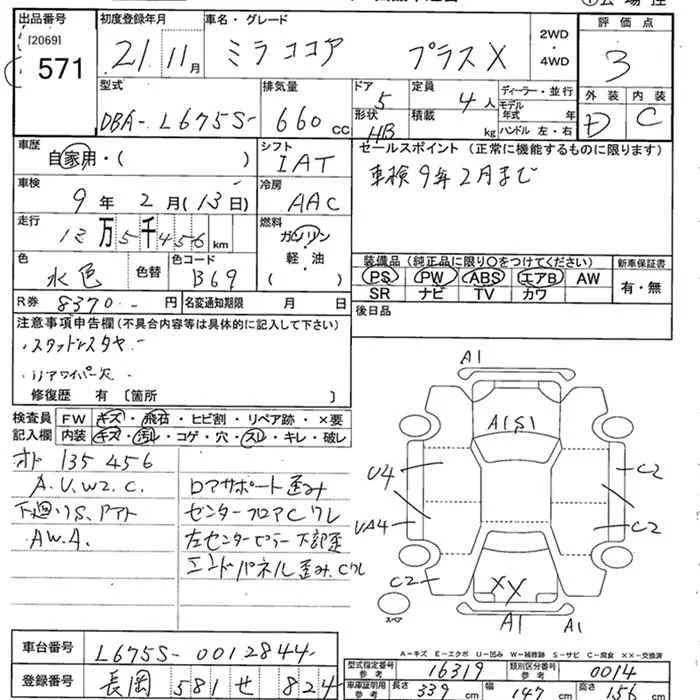 出品番号 初度登録年月 車名・グレード 2WD ・ 4WD 評価点
[2069] 571 21年 11月 ミラココア プラスX 3
型式 排気量 ドア 定員 ディーラー・並行 外装 内装
DBA- L675S- 660 cc 5 4人 モデル年式 年 D C
形状 HB 積載 kg ハンドル 左・右
車歴 自家用・( ) シフト IAT セールスポイント (正常に機能するものに限ります)
車検 9年 2月(13日) 冷房 AAC 車検9年2月まで
走行 13万5千456km 燃料 ガソリン 軽・油 ( )
色 水色 色替 色コード B69
装備品 (純正品に限り○をつけてください) 新車保証書
PS PW ABS エアB AW 有・無
SR ナビ TV カワ
R券 8370-- 円 名変通知期限 月 日 後日品
注意事項申告欄(不具合内容等は具体的に記入して下さい)
・スタッドレスタヤー
・リアワイパー欠
修復歴 有 [箇所 ]
検査員記入欄 FW キズ・飛石・ヒビ割・リペア跡・×要
内装 キズ・汚レ・コゲ・穴・スレ・キレ・破レ
オド 135456
A.U.W2.C. ロアサポート歪み
下廻りS、アト センターフロアCワレ
A.W.A. 左センターピラー下部歪
エンドパネル歪み、Cワレ
A1
A1S1
U4 C2
UA4 C2
C2 XX
スペア A1 A1
A-キズ E-エクボ U-凹み W-補修跡 S-サビ C-腐食 ××-交換済
車台番号 L675S-0012844-
登録番号 長岡 581 せ 824
型式指定番号 16319 類別区分番号 0014
車庫証明用参考 長さ参考 339 cm 幅参考 147 cm 高さ参考 156 cm